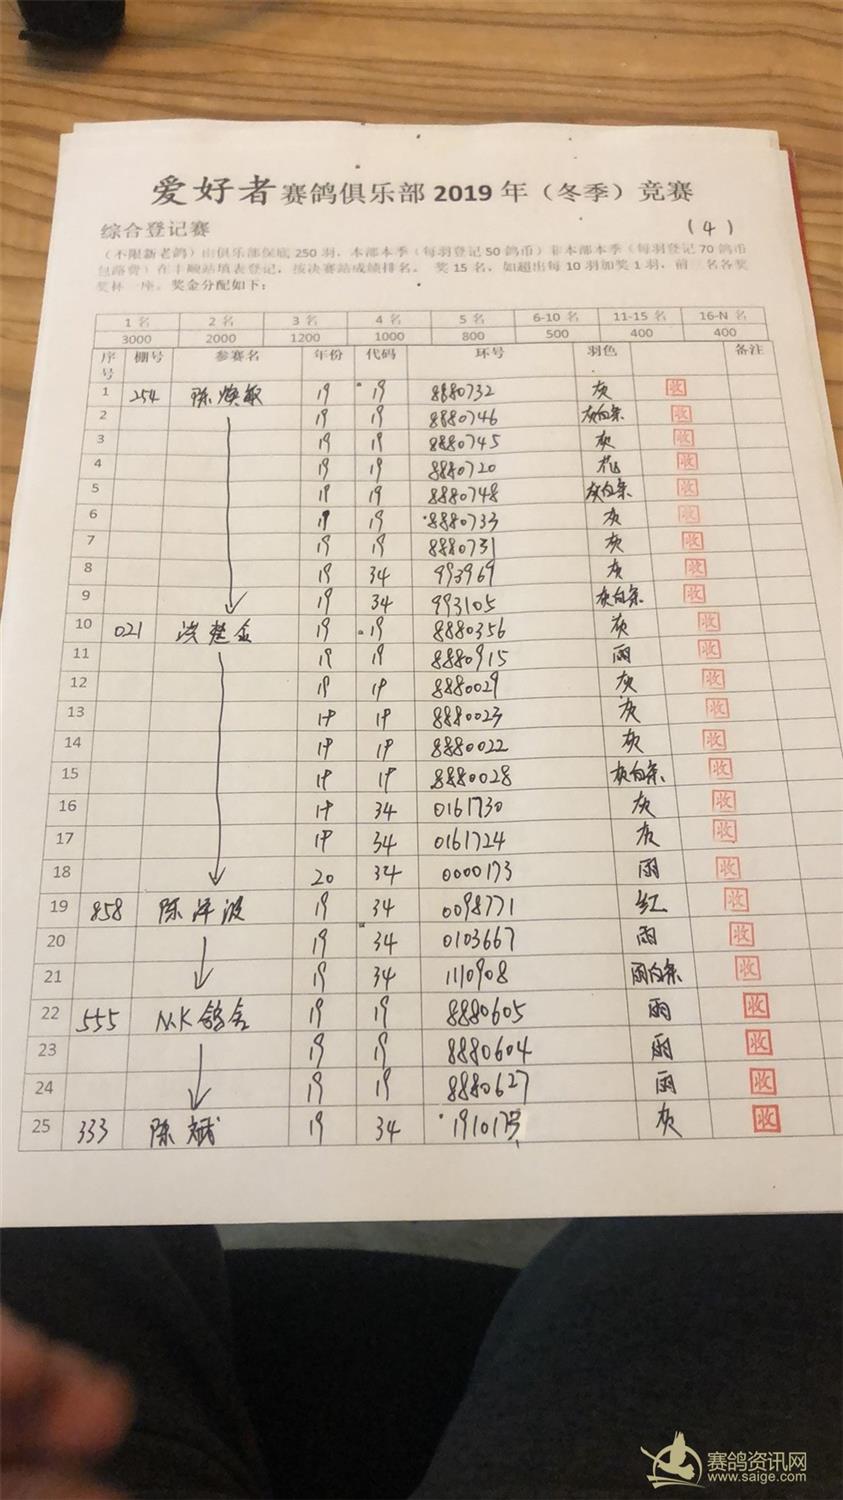 爱好者赛鸽俱乐部2019年（冬季）竞赛
综合登记赛 (4)
（不限新老鸽）由俱乐部保底250羽，本部本季（每羽登记50鸽币）非本部本季（每羽登记70鸽币
包路费）在 站填表登记，按决赛站成绩排名。 奖15名，如超出每10羽加奖1羽，前三名各奖
奖杯一座。奖金分配如下：
1名 2名 3名 4名 5名 6-10名 11-15名 16-N名
3000 2000 1200 1000 800 500 400 400
序号 棚号 参赛名 年份 代码 环号 羽色 备注
1 254 陈焕敏 19 19 8880732 灰 收
2 19 19 8880746 灰白条 收
3 19 19 8880745 灰 收
4 19 19 8880720 花 收
5 19 19 8880748 灰白条 收
6 19 19 8880733 灰 收
7 19 19 8880731 灰 收
8 19 34 993969 灰 收
9 19 34 993105 灰白条 收
10 021 洪楚金 19 19 8880356 灰 收
11 19 19 8880915 雨 收
12 19 19 8880029 灰 收
13 19 19 8880023 灰 收
14 19 19 8880022 灰 收
15 19 19 8880028 灰白条 收
16 19 34 0161730 灰 收
17 19 34 0161724 灰 收
18 20 34 0000173 雨 收
19 858 陈泽波 19 34 0098771 红 收
20 19 34 0103667 雨 收
21 19 34 1110908 雨白条 收
22 555 N.K鸽舍 19 19 8880605 雨 收
23 19 19 8880604 雨 收
24 19 19 8880627 雨 收
25 333 陈斌 19 34 灰 收
赛鸽资讯网
www.saige.com